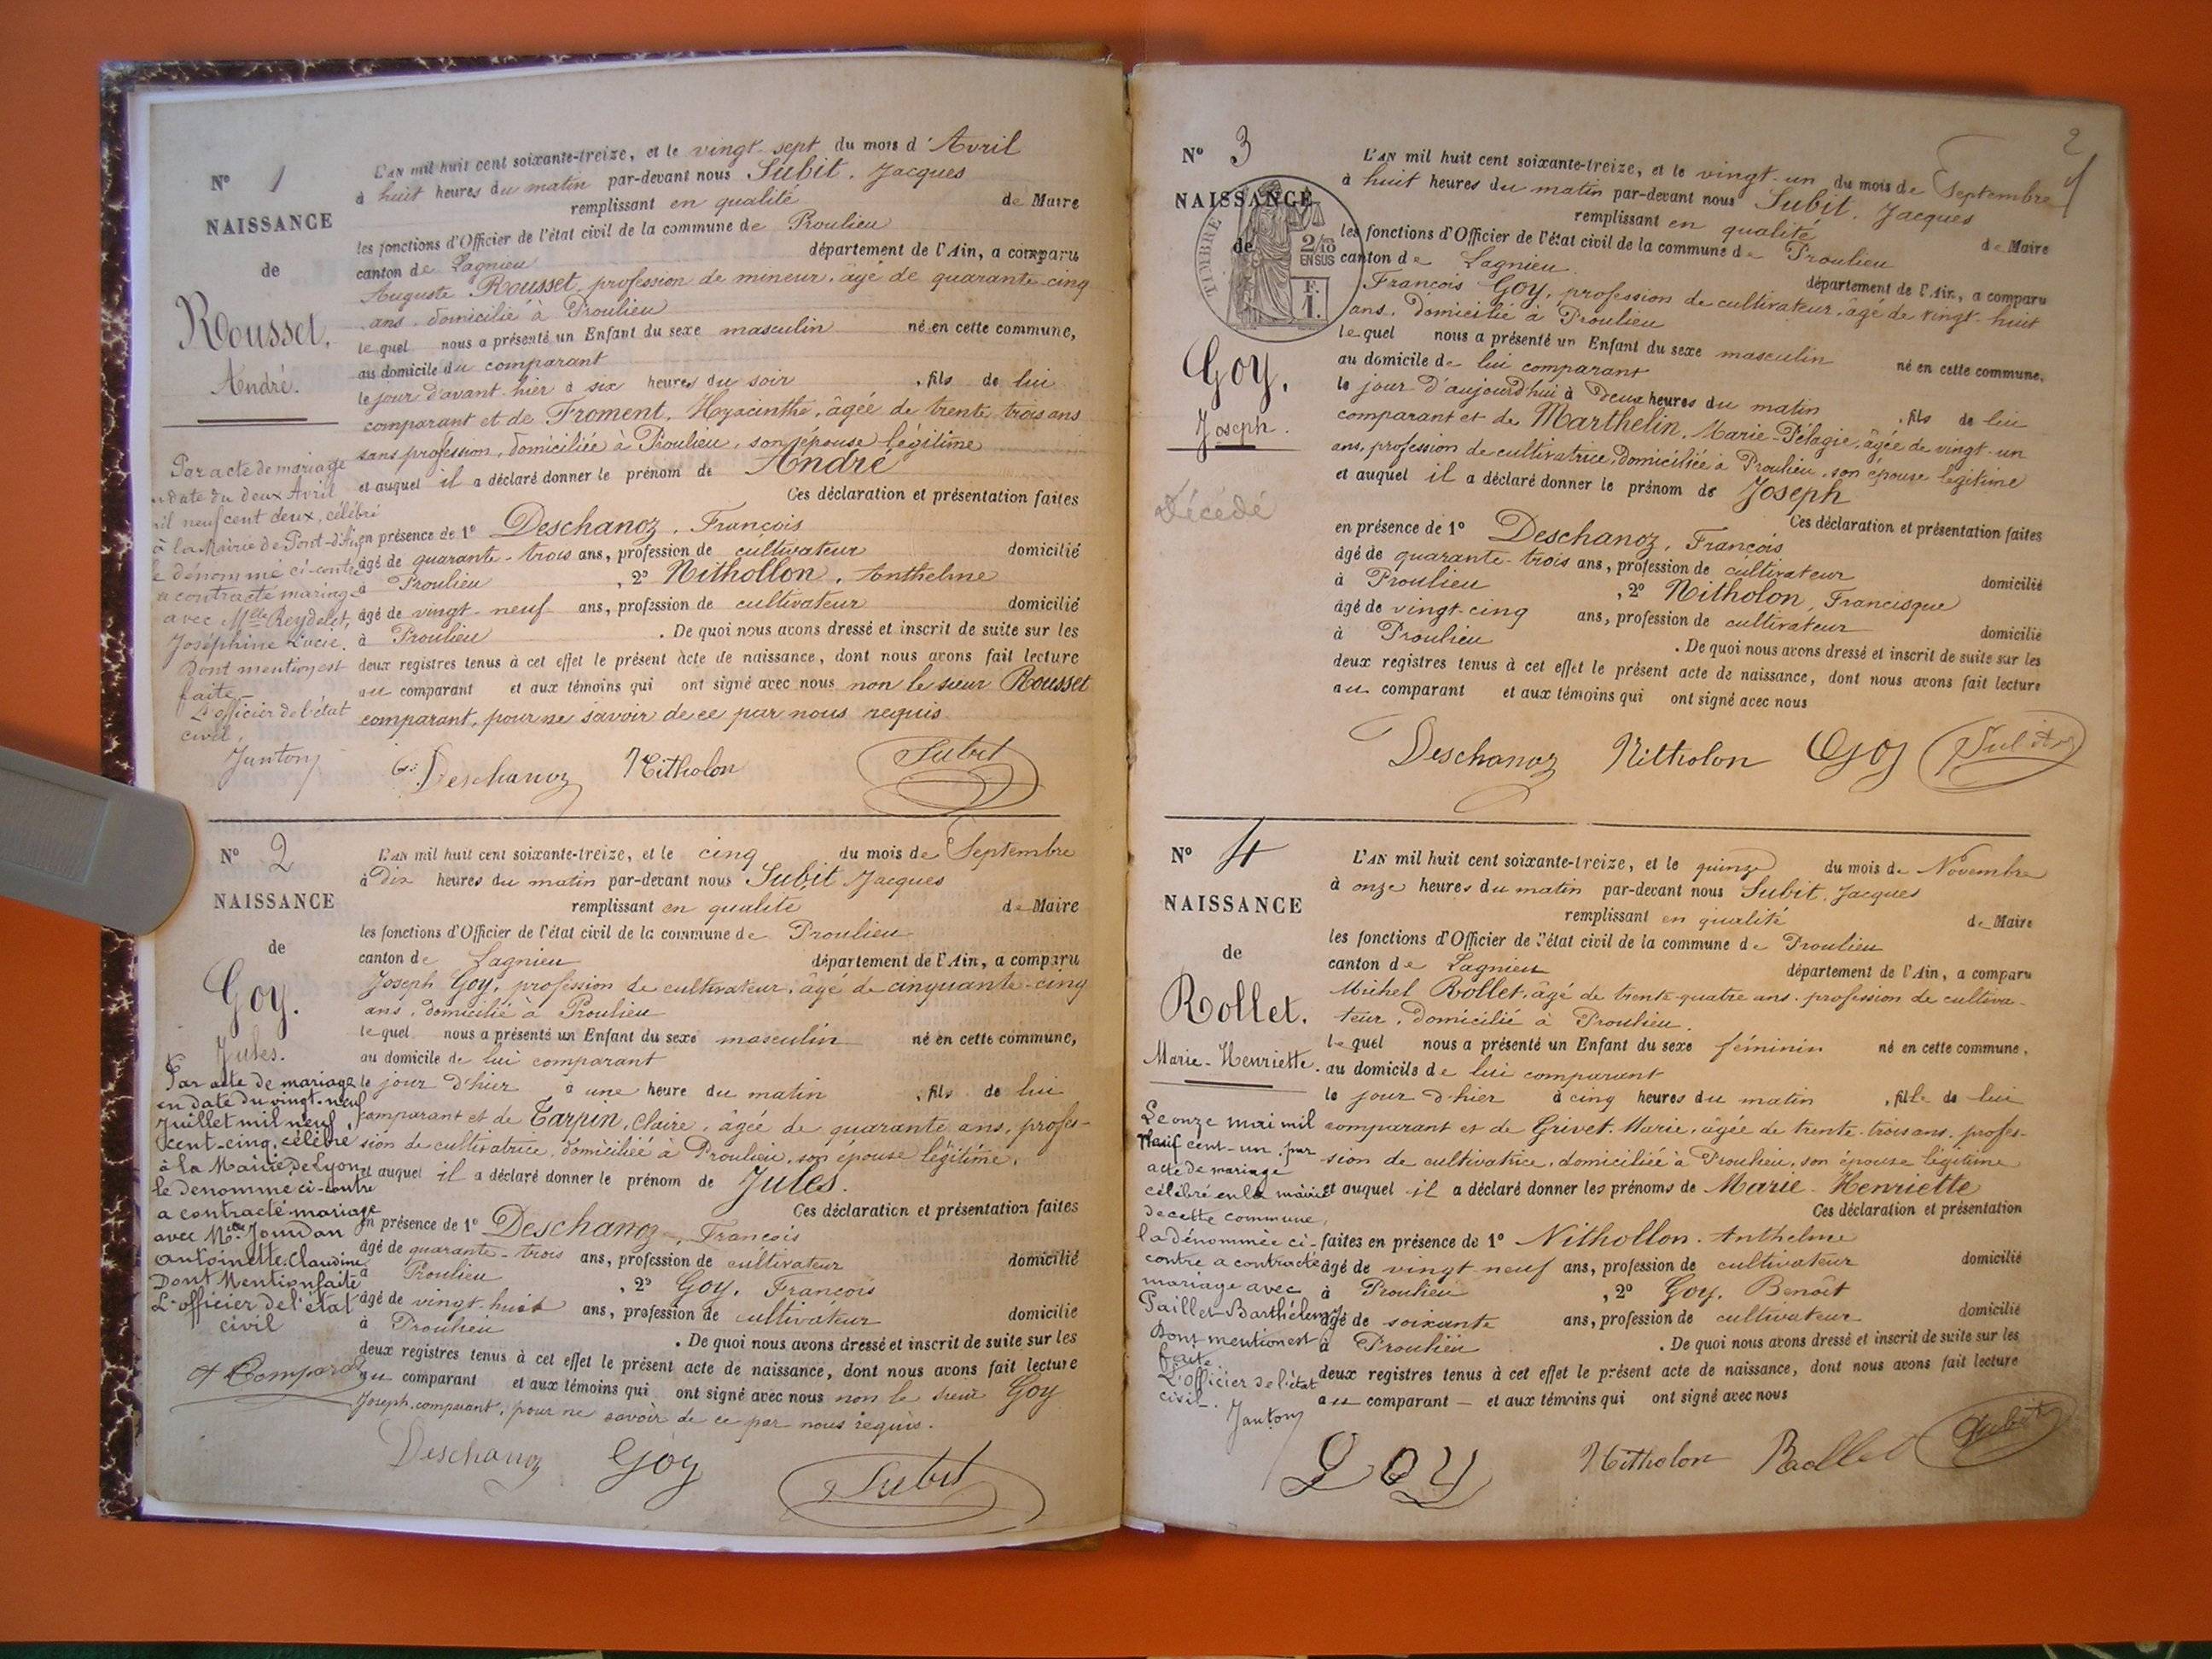 N° 1
NAISSANCE
de
Rousset,
André.
L'AN mil huit cent soixante-treize, et le vingt-sept du mois d'Avril
à huit heures du matin par-devant nous Subit, Jacques
remplissant en qualité de Maire
les fonctions d'Officier de l'état civil de la commune de Proulieu
canton de Lagnieu département de l'Ain, a comparu
Auguste Rousset, profession de mineur, âgé de quarante-cinq
ans, domicilié à Proulieu
lequel nous a présenté un Enfant du sexe masculin né en cette commune,
au domicile du comparant
le jour d'avant hier à six heures du soir, fils de lui
comparant et de Froment, Hyacinthe, âgée de trente trois ans
sans profession, domiciliée à Proulieu, son épouse légitime
et auquel il a déclaré donner le prénom de André
Ces déclaration et présentation faites
en présence de 1° Deschanoz, François
âgé de quarante-trois ans, profession de cultivateur domicilié
à Proulieu, 2° Nithollon, Anthelme
âgé de vingt-neuf ans, profession de cultivateur domicilié
à Proulieu. De quoi nous avons dressé et inscrit de suite sur les
deux registres tenus à cet effet le présent acte de naissance, dont nous avons fait lecture
au comparant et aux témoins qui ont signé avec nous non le sieur Rousset
comparant, pour ne savoir de ce par nous requis
Deschanoz Nitholon Subit
Par acte de mariage
en date du deux Avril
mil neuf cent deux, célébré
à la Mairie de Pont-d'Ain
le dénommé ci-contre
a contracté mariage
avec Mlle Reydelet,
Joséphine Lucie.
Dont mention est
faite
L'officier de l'état
civil,
Jantony
N° 2
NAISSANCE
de
Goy.
Jules.
L'AN mil huit cent soixante-treize, et le cinq du mois de Septembre
à dix heures du matin par-devant nous Subit Jacques
remplissant en qualité de Maire
les fonctions d'Officier de l'état civil de la commune de Proulieu
canton de Lagnieu département de l'Ain, a comparu
Joseph Goy, profession de cultivateur, âgé de cinquante-cinq
ans, domicilié à Proulieu
lequel nous a présenté un Enfant du sexe masculin né en cette commune,
au domicile de lui comparant
le jour d'hier à une heure du matin, fils de lui
comparant et de Tarpin, Claire, âgée de quarante ans, profes-
sion de cultivatrice, domiciliée à Proulieu, son épouse légitime,
et auquel il a déclaré donner le prénom de Jules.
Ces déclaration et présentation faites
en présence de 1° Deschanoz, François
âgé de quarante-trois ans, profession de cultivateur domicilié
à Proulieu, 2° Goy, François
âgé de vingt-huit ans, profession de cultivateur domicilié
à Proulieu. De quoi nous avons dressé et inscrit de suite sur les
deux registres tenus à cet effet le présent acte de naissance, dont nous avons fait lecture
au comparant et aux témoins qui ont signé avec nous non le sieur Goy
Joseph, comparant, pour ne savoir de ce par nous requis.
Deschanoz Goy Subit
Par acte de mariage
en date du vingt-neuf
Juillet mil neuf
cent-cinq, célébré
à la Mairie de Lyon
le dénommé ci-contre
a contracté mariage
avec Jourdan
Antoinette Claudine
Dont Mention faite
L'officier de l'état
civil
N° 3
NAISSANCE
de
Goy,
Joseph.
Décédé
TIMBRE
2/10
EN SUS
F.
1.
2
L'AN mil huit cent soixante-treize, et le vingt-un du mois de Septembre
à huit heures du matin par-devant nous Subit, Jacques
remplissant en qualité de Maire
les fonctions d'Officier de l'état civil de la commune de Proulieu
canton de Lagnieu département de l'Ain, a comparu
François Goy, profession de cultivateur, âgé de vingt-huit
ans, domicilié à Proulieu
lequel nous a présenté un Enfant du sexe masculin né en cette commune,
au domicile de lui comparant
le jour d'aujourd'hui à Deux heures du matin, fils de lui
comparant et de Marthelin, Marie-Pélagie, âgée de vingt-un
ans, profession de cultivatrice, domiciliée à Proulieu, son épouse légitime
et auquel il a déclaré donner le prénom de Joseph
Ces déclaration et présentation faites
en présence de 1° Deschanoz, François
âgé de quarante-trois ans, profession de cultivateur domicilié
à Proulieu, 2° Nitholon, Francisque
âgé de vingt-cinq ans, profession de cultivateur domicilié
à Proulieu. De quoi nous avons dressé et inscrit de suite sur les
deux registres tenus à cet effet le présent acte de naissance, dont nous avons fait lecture
au comparant et aux témoins qui ont signé avec nous
Deschanoz Nitholon Goy Subit
N° 4
NAISSANCE
de
Rollet.
Marie-Henriette.
L'AN mil huit cent soixante-treize, et le quinze du mois de Novembre
à onze heures du matin par-devant nous Subit, Jacques
remplissant en qualité de Maire
les fonctions d'Officier de l'état civil de la commune de Proulieu
canton de Lagnieu département de l'Ain, a comparu
Michel Rollet, âgé de trente-quatre ans, profession de cultiva-
teur, domicilié à Proulieu.
lequel nous a présenté un Enfant du sexe féminin né en cette commune,
au domicile de lui comparant
le jour d'hier à cinq heures du matin, fille de lui
comparant et de Grivet, Marie, âgée de trente-trois ans, profes-
sion de cultivatrice, domiciliée à Proulieu, son épouse légitime
et auquel il a déclaré donner les prénoms de Marie-Henriette
Ces déclaration et présentation
faites en présence de 1° Nithollon, Anthelme
âgé de vingt neuf ans, profession de cultivateur domicilié
à Proulieu, 2° Goy, Benoît
âgé de soixante ans, profession de cultivateur domicilié
à Proulieu. De quoi nous avons dressé et inscrit de suite sur les
deux registres tenus à cet effet le présent acte de naissance, dont nous avons fait lecture
au comparant et aux témoins qui ont signé avec nous
Goy Nitholon Rollet Subit
Le onze mai mil
neuf cent-un, par
acte de mariage
célébré en la mairie
de cette commune,
la dénommée ci-
contre a contracté
mariage avec
Paillet Barthélemy
Dont mention est
faite
L'officier de l'état
civil.
Jantony